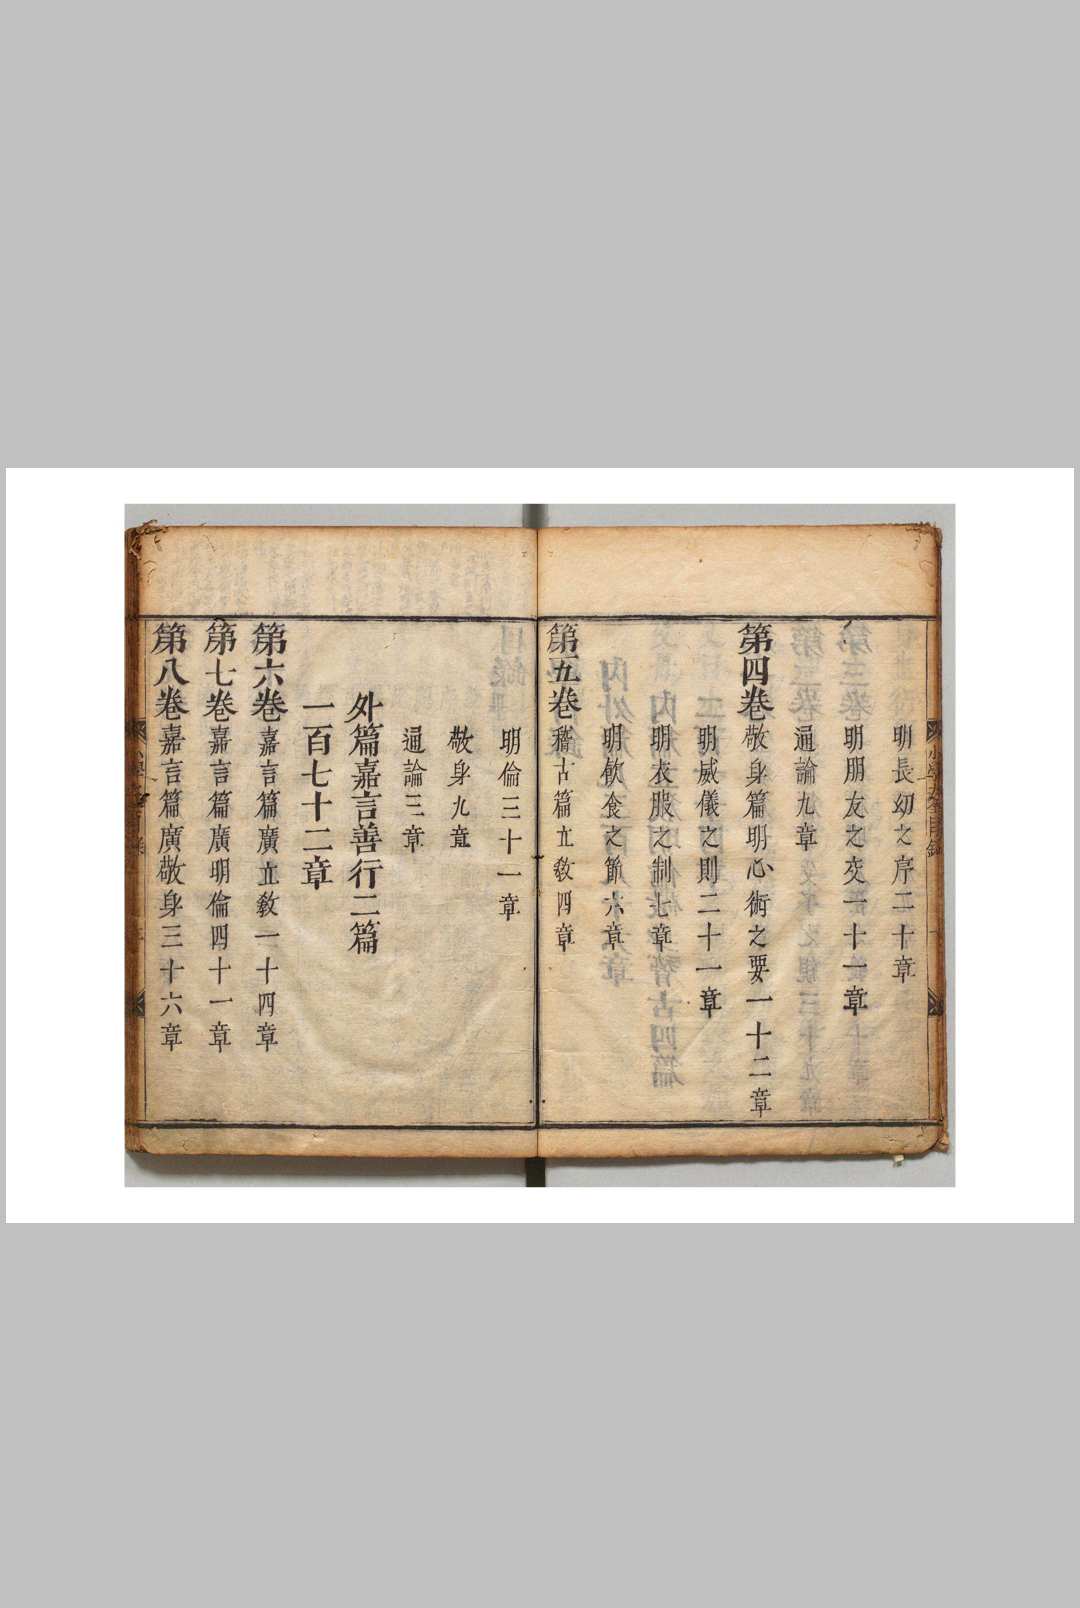 明長幼之序二十章
明朋友之交一十一章
通論九章
第四卷敬身篇明心術之要一十二章
明威儀之則二十一章
明衣服之制七章
明飲食之節六章
第五卷稽古篇立敎四章
明倫三十一章
敬身九章
通論三章
外篇嘉言善行二篇
一百七十二章
第六卷嘉言篇廣立敎一十四章
第七卷嘉言篇廣明倫四十一章
第八卷嘉言篇廣敬身三十六章